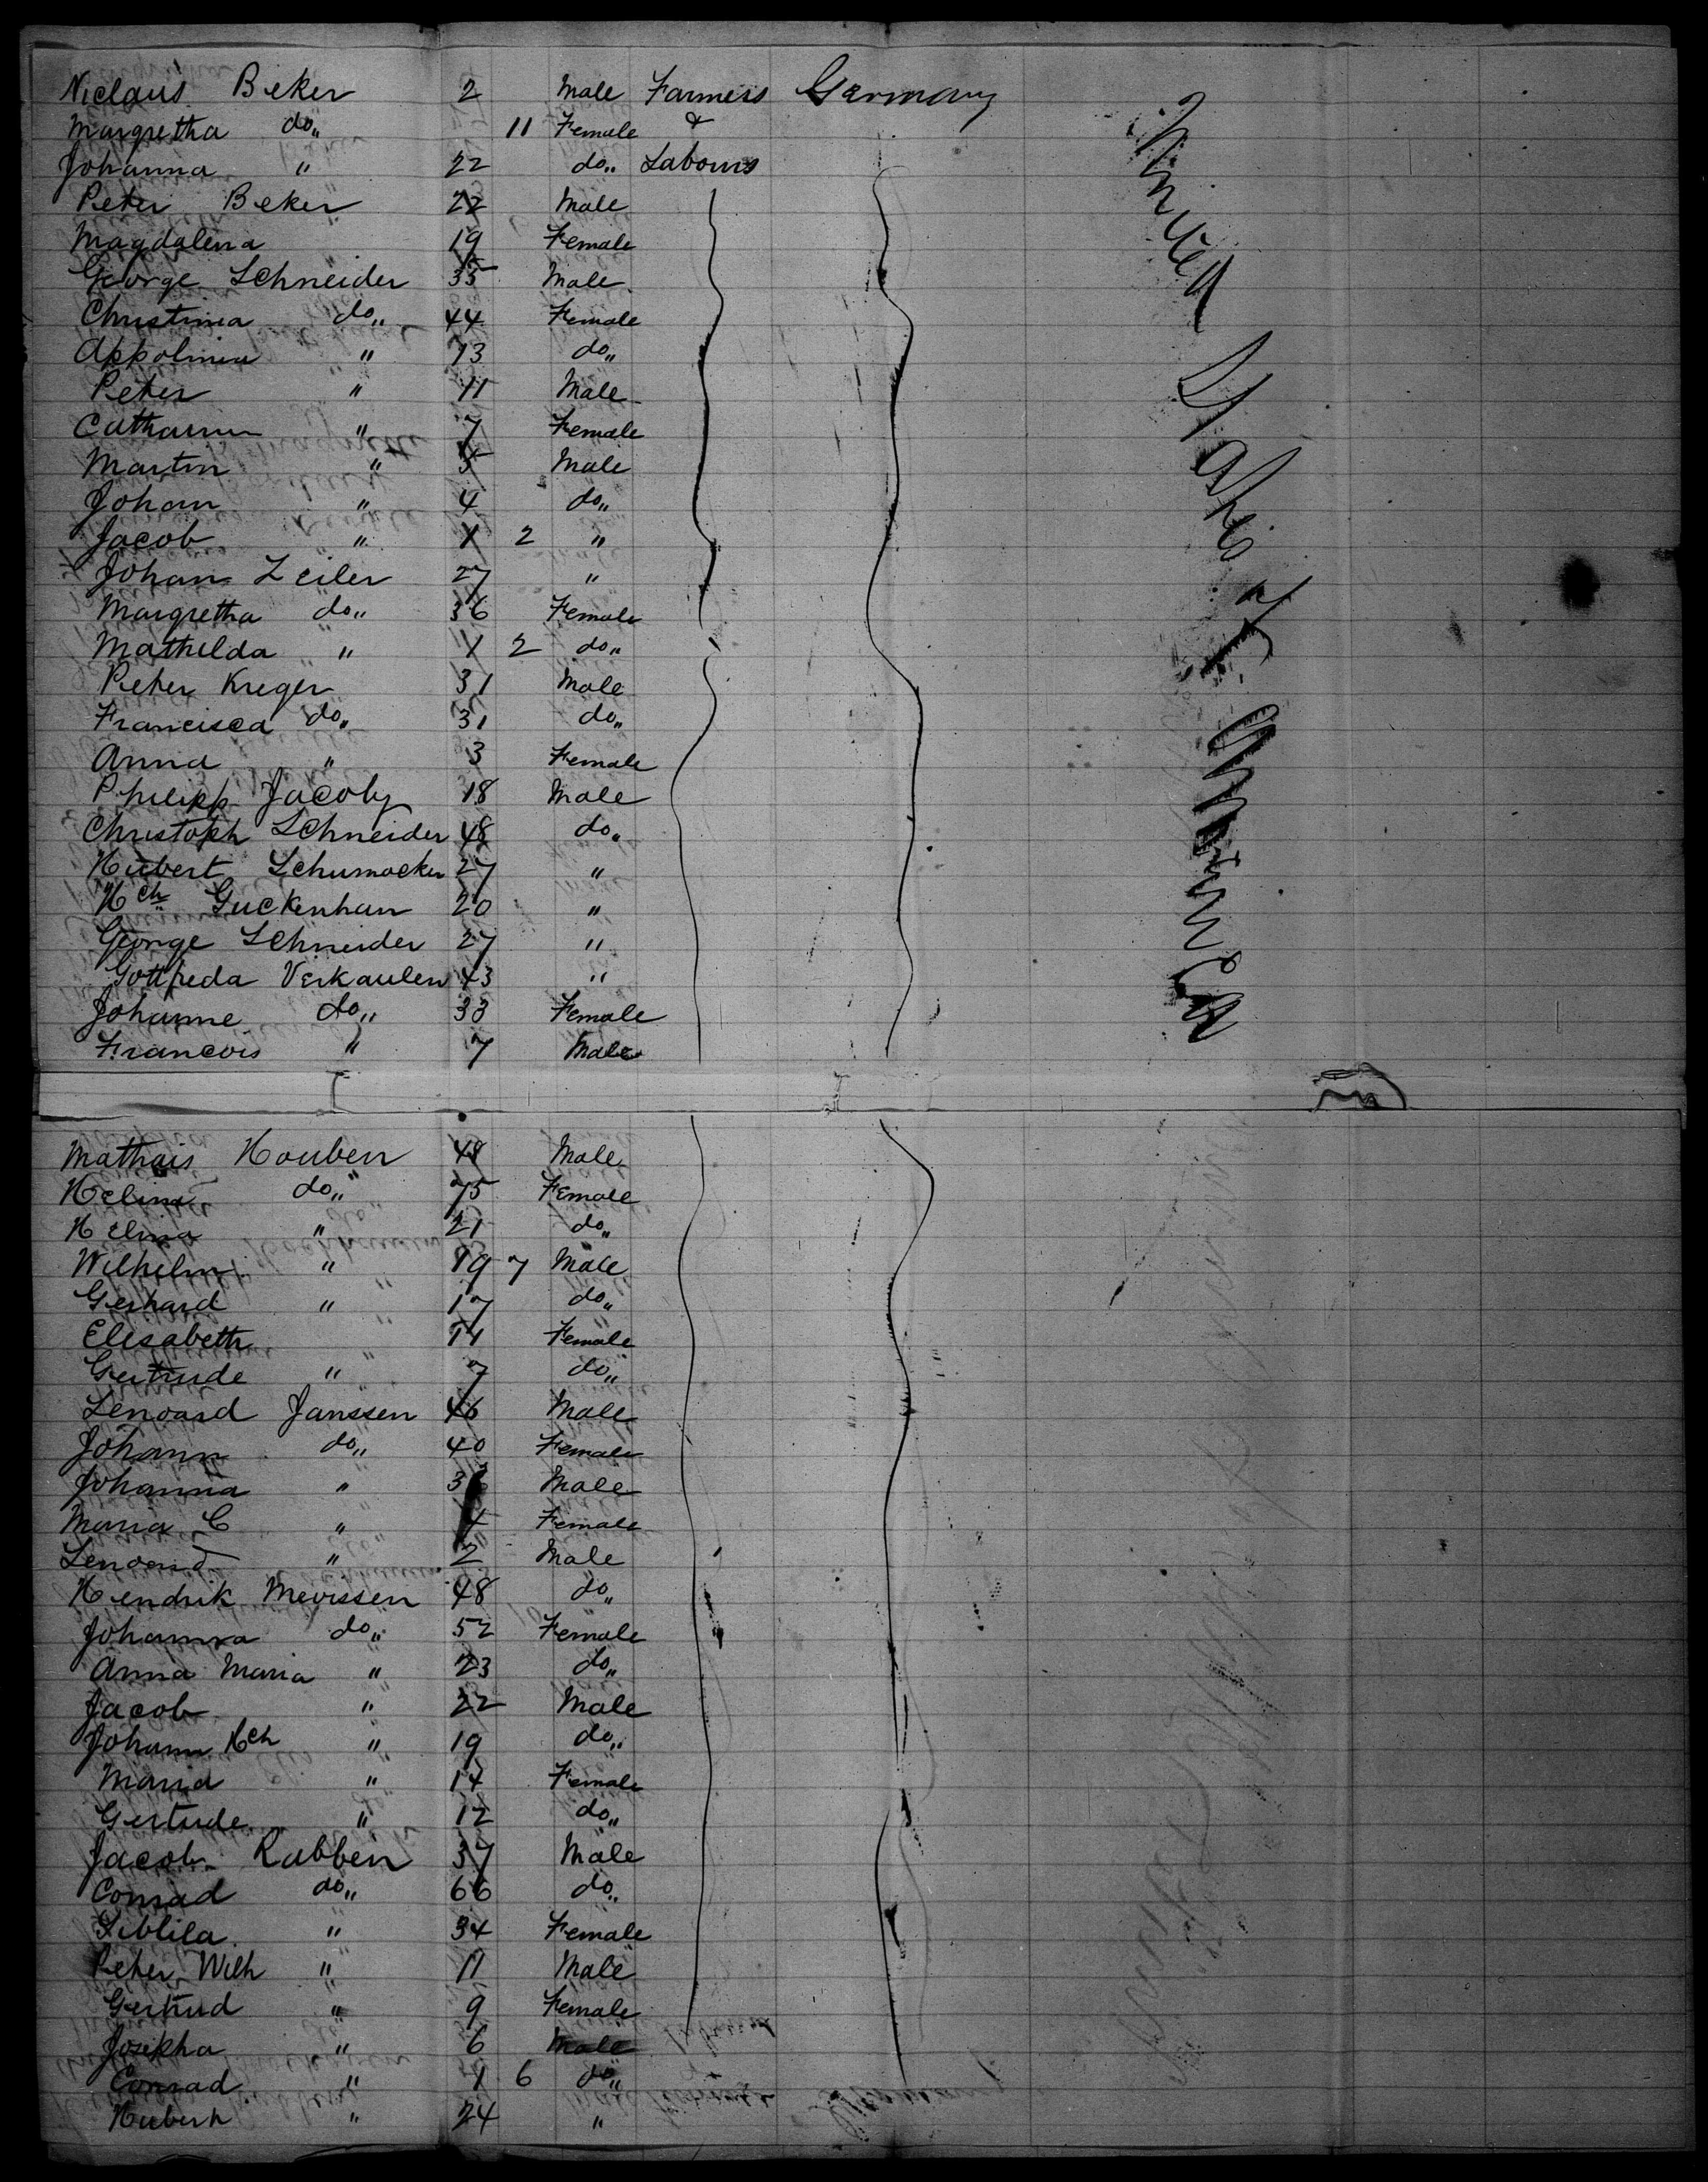 Niclaus Beker 2 Male Farmers Germany
Margretha do,, 11 Female &
Johanna " 22 do,, Labours
Peter Beker 22 Male
Magdalena 19 Female
George Schneider 35 Male
Christina do,, 44 Female
Appolinia " 13 do,,
Peter " 11 Male
Catharina " 7 Female
Martin " 5 Male
Johan " 4 do,,
Jacob " 1 2 "
Johan Zeiler 27 "
Margretha do,, 36 Female
Mathilda " 1 2 do,,
Peter Kreger 31 Male
Francisca do,, 31 do,,
Anna " 3 Female
Philipp Jacoby 18 Male
Christoph Schneider 48 do,,
Hubert Schumacker 27 "
Hch Guckenhan 20 "
George Schneider 27 "
Gottfreda Verkaulen 43 "
Johanne do,, 33 Female
Francois " 7 Male
United States of America
Mathais Houben 48 Male
Helina do,, 45 Female
Helina " 21 do,,
Wilhelm " 19 7 Male
Gerhard " 17 do,,
Elisabeth 11 Female
Gertrude " 7 do,,
Lenoard Janssen 46 Male
Johann do,, 40 Female
Johanna " Male
Maria C " 4 Female
Lenoard " 2 Male
Hendrik Mevissen 48 do,,
Johanna do,, 52 Female
Anna Maria " 23 do,,
Jacob " 22 Male
Johann Hch " 19 do,,
Maria " 14 Female
Gertude " 12 do,,
Jacob Rubben 37 Male
Conrad do,, 66 do,,
Siblila " 34 Female
Peter Wilh " 11 Male
Gertrud " 9 Female
Josepha " 6 Male
Conrad " 1 6 do,,
Hubert " 24 "